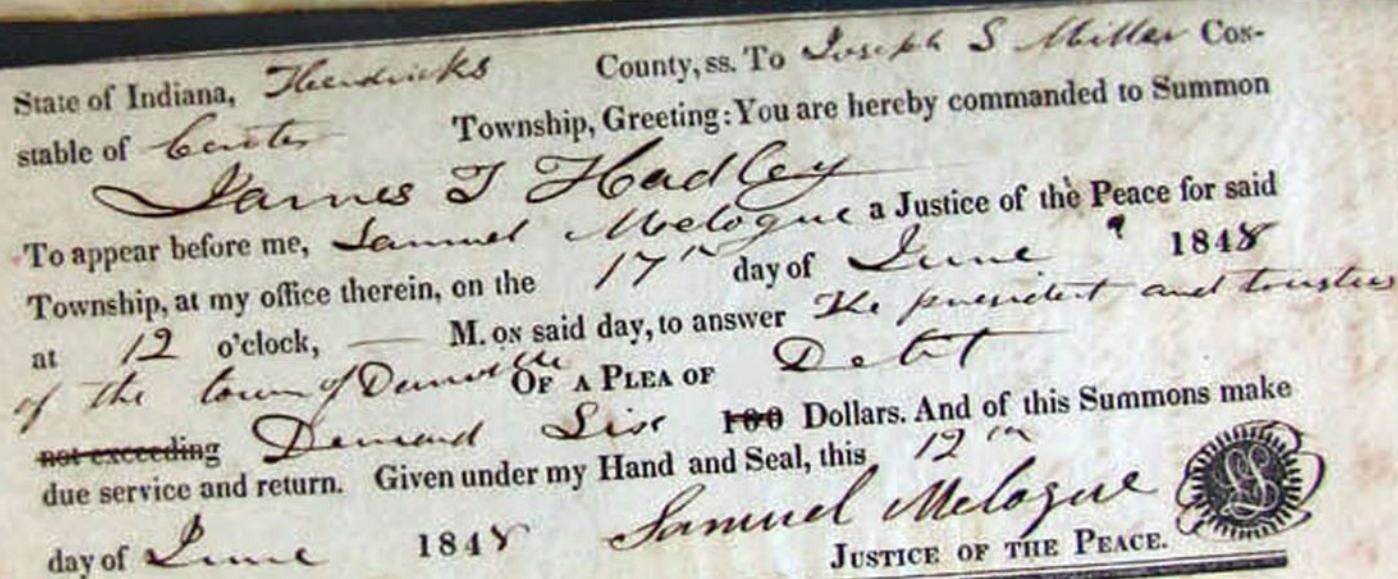 State of Indiana, Hendricks County, ss. To Joseph S Miller Con-
stable of Center Township, Greeting: You are hereby commanded to Summon
James T Hadley
To appear before me, Samuel Melogue a Justice of the Peace for said
Township, at my office therein, on the 17th day of June 1848
at 12 o'clock, — M. on said day, to answer The president and trustees
of the town of Danville OF A PLEA OF Debt
not exceeding Demand Six 100 Dollars. And of this Summons make
due service and return. Given under my Hand and Seal, this 12th
day of June 1848 Samuel Melogue
JUSTICE OF THE PEACE.
LS